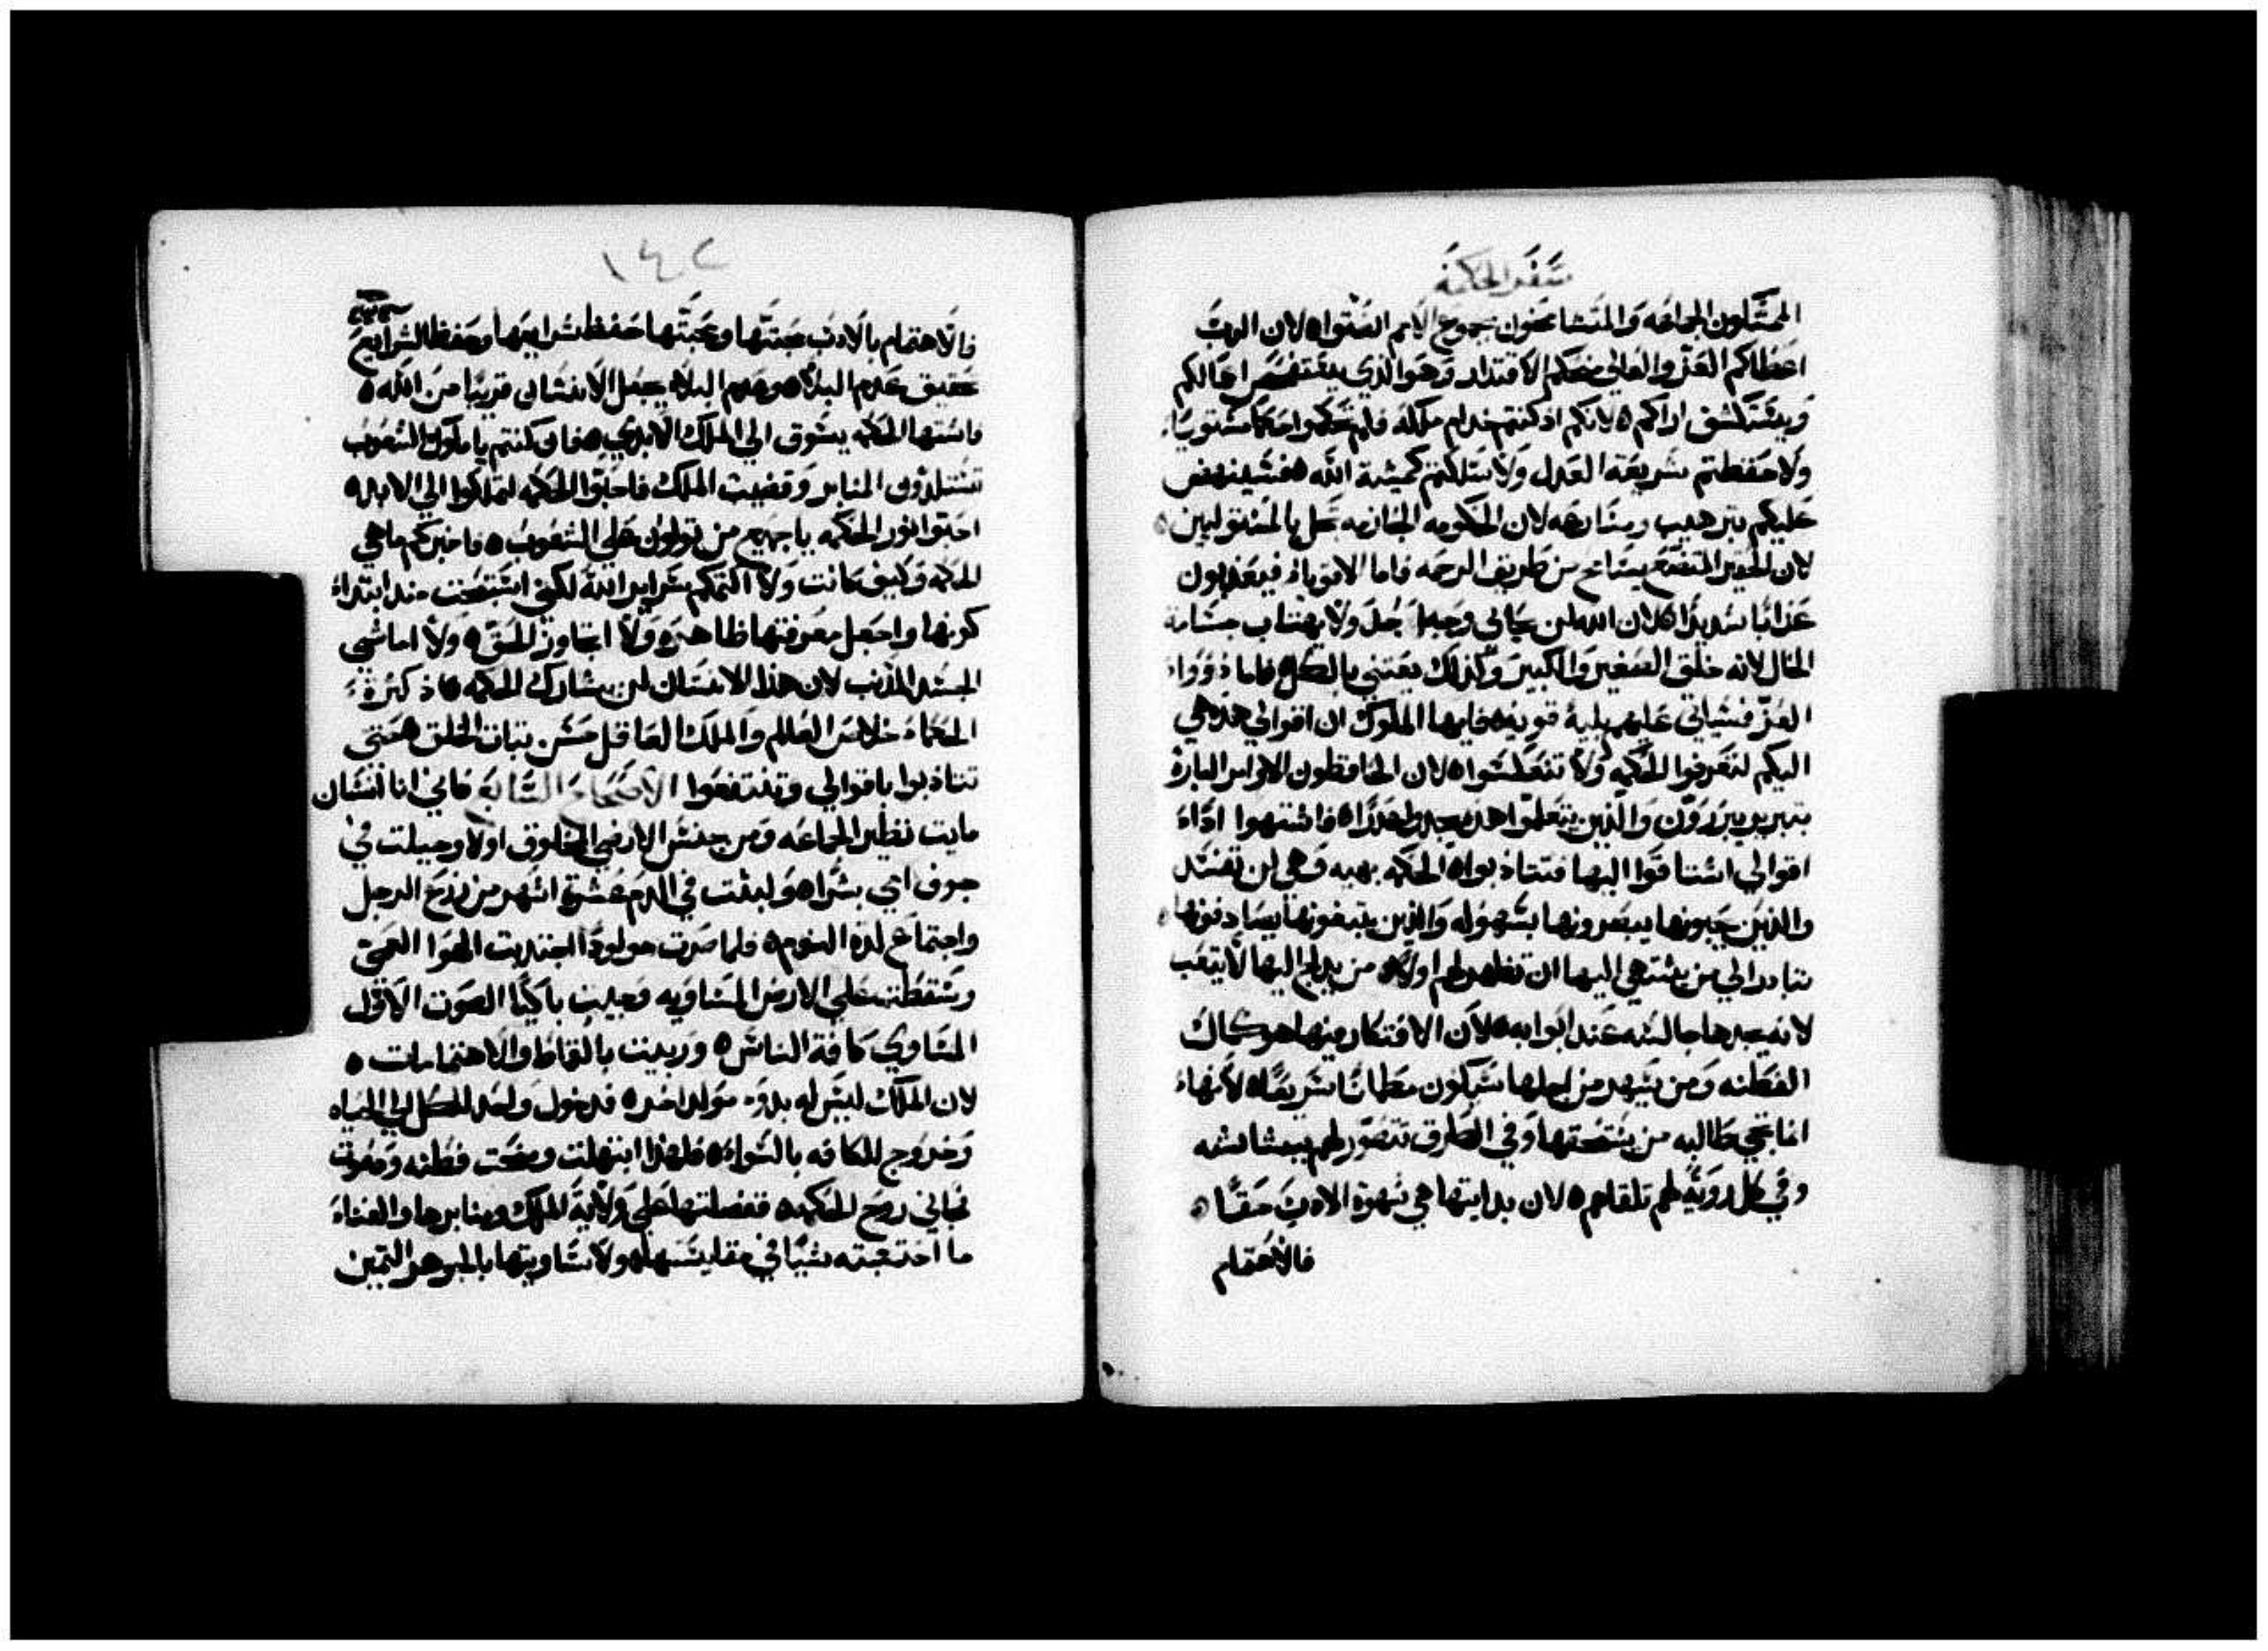 سفر الحكمة
المتسلون الجماعه والمتشامخون بجموع الامم انصتوا ه لان الرب
اعطاكم العز والعالي منحكم الاقتدار وهو الذي يستفحص اعمالكم
ويستكشف اراكم ه لانكم اذ كنتم خدام ملكه فلم تحكموا حكما مستويا ه
ولا حفظتم شريعة العدل ولا سلكتم كمشية الله ه فسينهض
عليكم بترهيب ومسارعه لان الحكومه الجازمه تحل بالمستوليين ه
لان الحقير المتضع يسامح من طريق الرحمه فاما الاقوياء فيعذبون
عذابا شديدا ه لان الله لن يحابي وجها لاجل ولا يهتاب جسامة
الحال لانه خلق الصغير والكبير وكذلك يعتني بالكل ه فاما ذوو
العز فسياتي عليهم بلية قويه ه فايها الملوك ان اقوالي هذه هي
اليكم لتعرفوا الحكمه ولا تنعكسوا ه لان الحافظون الاوامر البارة
بتبرير يبررون والذين يتعلموا هذه يجدوا عذرا ه فاشتهوا اذا
اقوالي اشتاقوا اليها فتتاذبوا ه الحكمه بهيه وهي لن تفسد
والذين يحبونها يبصرونها بسهوله والذين يتبغونها يصادفونها ه
تبادر الي من يشتهي اليها ان تظهر لهم اولا ه من يدلج اليها لا يتعب
لانه يجدها جالسه عند ابوابه ه لان الافتكار فيها هو كمال
الفطنه ومن يسهر من اجلها سيكون مطمانا سريعا ه لانها
انما تجي طالبه من يستحقها وفي الطرق تتصور لهم ببشاشه
وفي كل روية لهم تلقاهم ه لان بدايتها هي شهوة الادب حقا ه
فالاهتمام
١٤٢
فالاهتمام بالادب محبتها ومحبتها حفظ شرايعها وحفظ الشرايع
تحقيق عدم البلاء وعدم البلاء يجعل الانسان قريبا من الله ه
فاشتها الحكمه يشوق الي الملك الابدي ه فان كنتم يا ملوك الشعوب
تستلذون المنابر وقضيب الملك فاحبوا الحكمه لتملكوا الي الابد ه
احبوا نور الحكمه يا جميع من تولون علي الشعوب ه فاخبركم ما هي
الحكمه وكيف كانت ولا اكتمكم سراير الله لكني استبحث منذ ابتداء
كونها واجعل معرفتها ظاهره ولا اتجاوز الحق ه ولا اماشي
الحسد المذنب لان هذا الانسان لن يشارك الحكمه ه اذ كثرة
الحكماء خلاص العالم والملك العاقل حسن ثبات الخلق ه حتي
تتاذبوا باقوالي وتنتفعوا الاصحاح السابع فاني انا انسان
مايت نظير الجماعه ومن جنس الارضي المخلوق اولا وجبلت في
جوف امي بشرا ه ولبثت في الدم عشرة اشهر من زرع الرجل
واجتماع لذة النوم ه فلما صرت مولودا اجتذبت الهوا العمي
وسقطت علي الارض المتساويه وجيت باكيا الصوت الاول
المتساوي كافة الناس ه وربيت بالقماط والاهتمامات ه
لان الملك ليس له بدو مولد اخر ه فدخول واحد للكل الي الحياه
وخروج للكافه بالسواء ه فلهذا ابتهلت ومنحت فطنه ودعوت
فجاني روح الحكمه ه ففضلتها علي ولاية الملك ومنابرها والغناء
ما احتسبته شيا في مقايستها ه ولا ساويتها بالجوهر الثمين